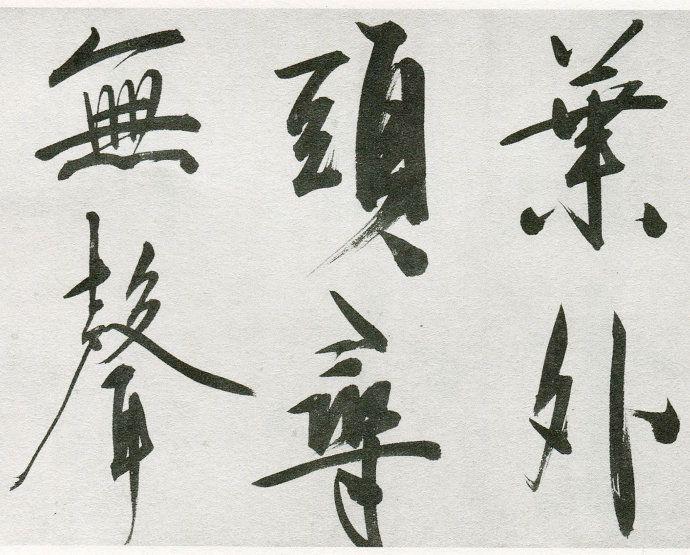 葉外
頭
無聲